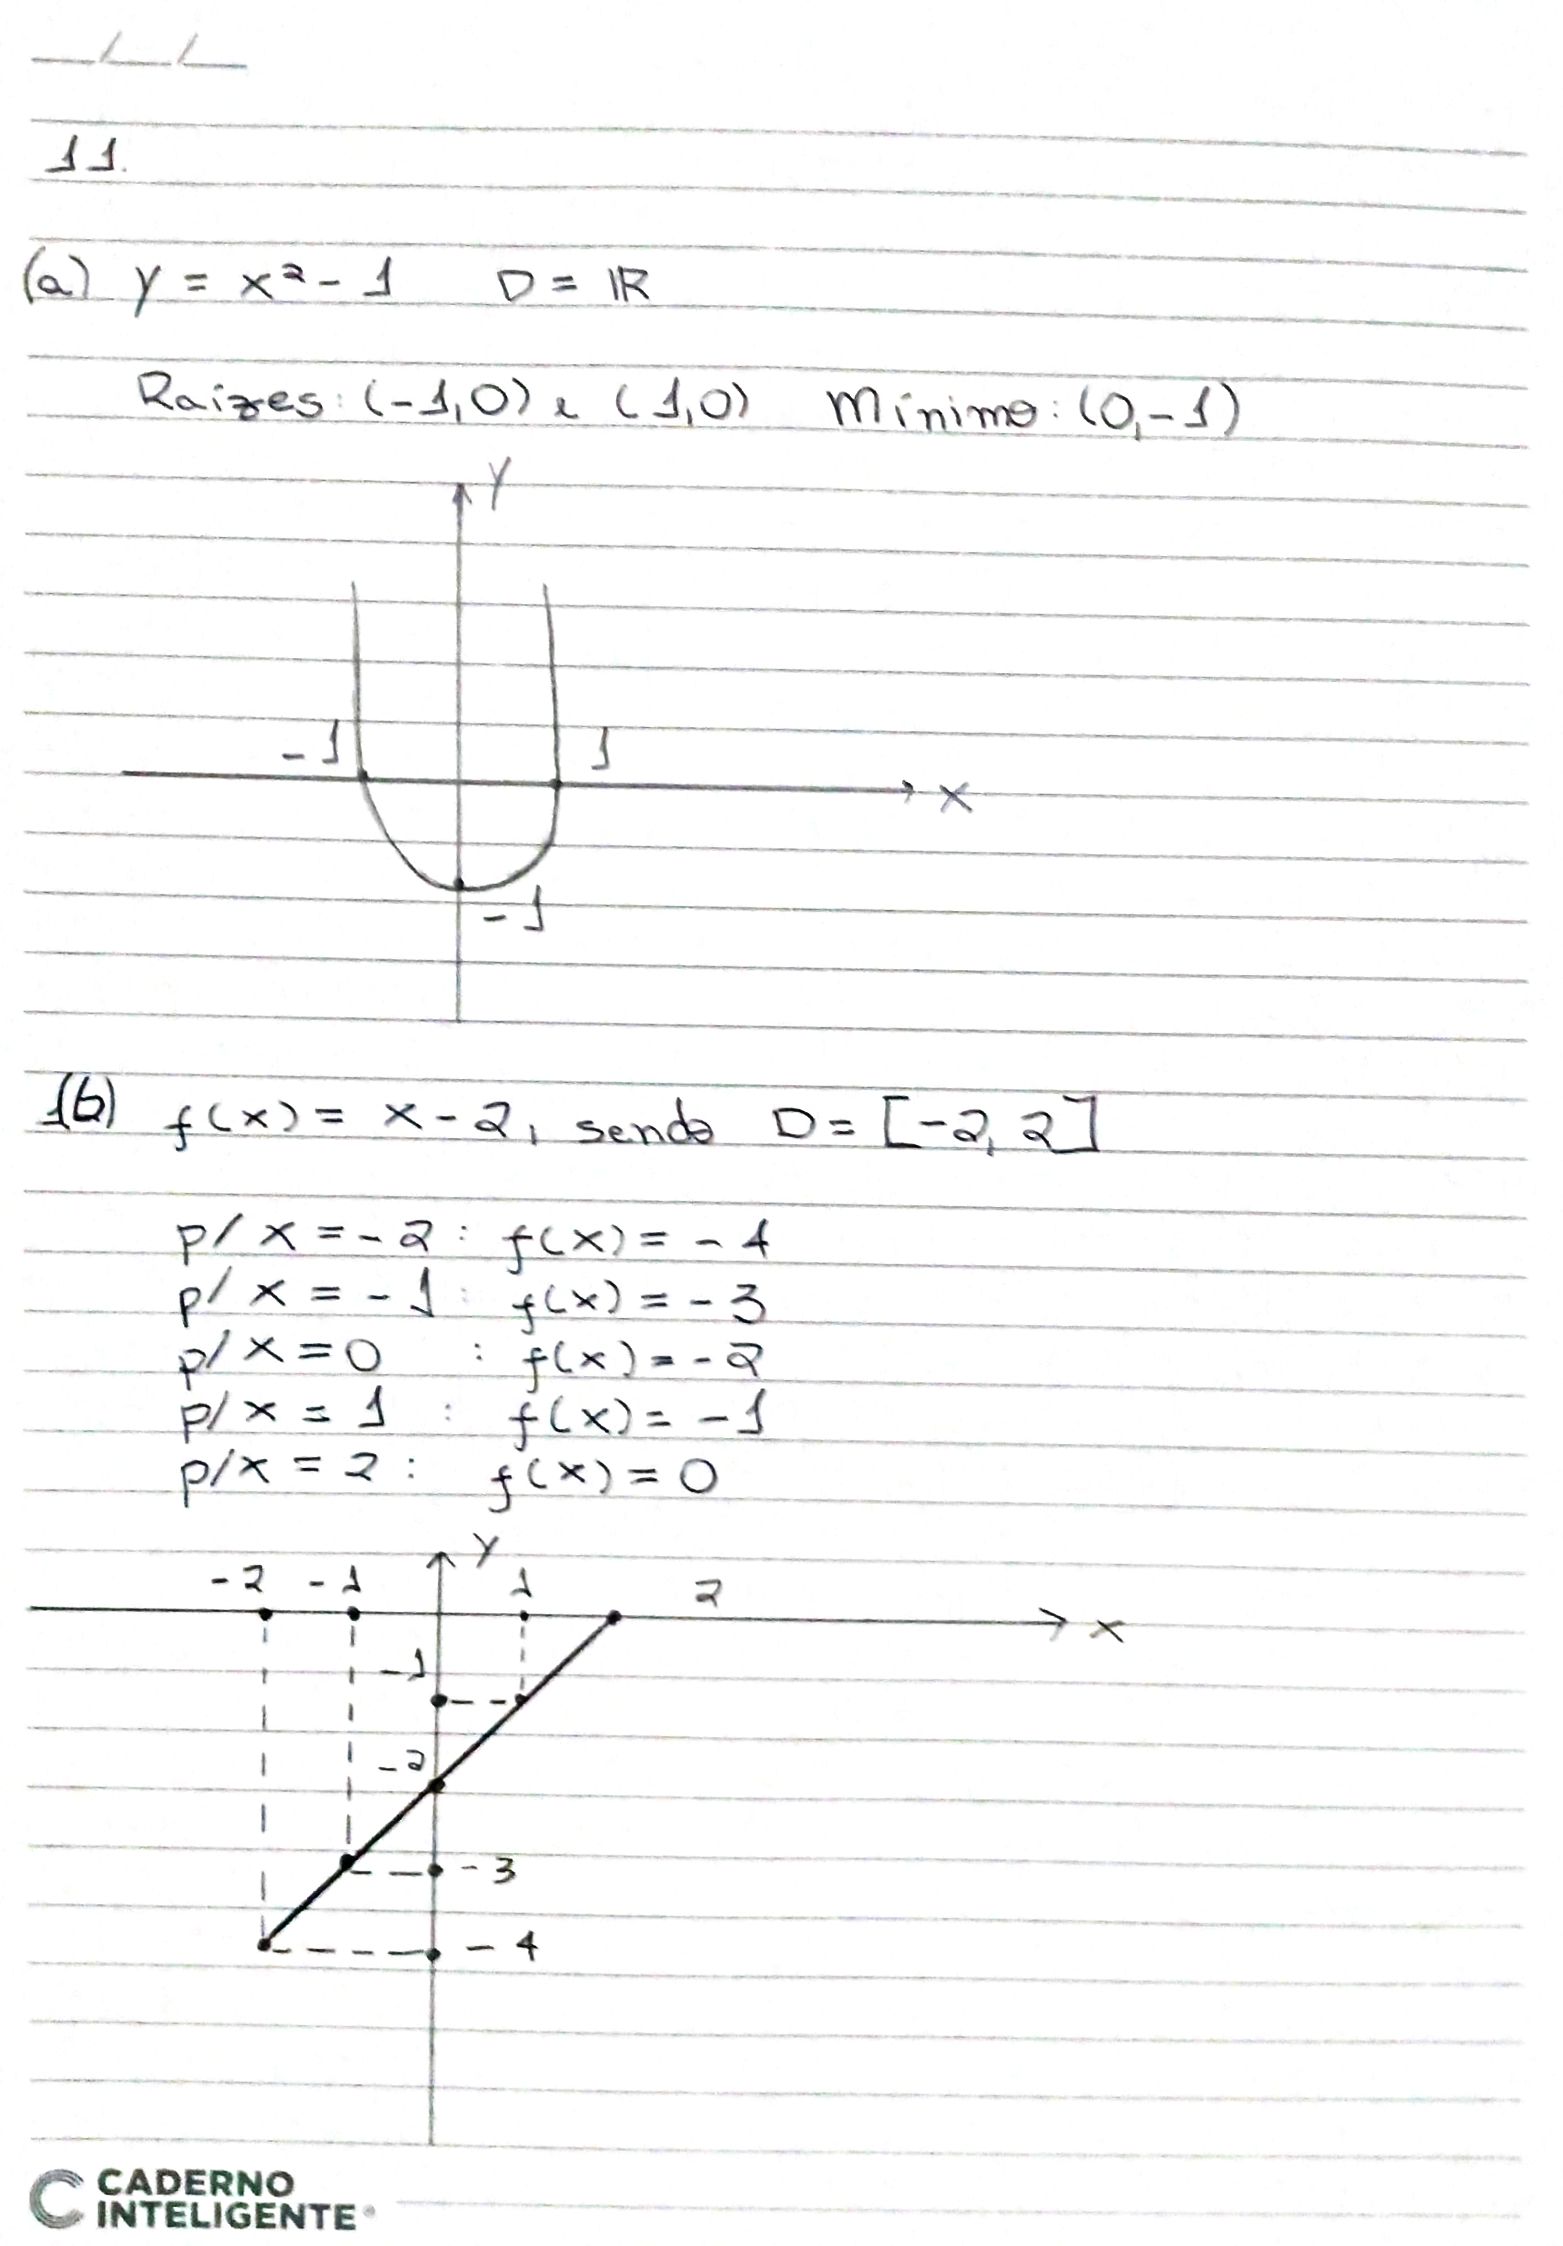 __/__/__
11.
(a) y = x² - 1 D = ℝ
Raízes: (-1,0) e (1,0) Mínimo: (0,-1)
y
-1 1
x
-1
(b) f(x) = x - 2, sendo D = [-2, 2]
p/ x = -2 : f(x) = -4
p/ x = -1 : f(x) = -3
p/ x = 0 : f(x) = -2
p/ x = 1 : f(x) = -1
p/ x = 2 : f(x) = 0
y
-2 -1 1 2
x
-1
-2
-3
-4
CADERNO
INTELIGENTE®